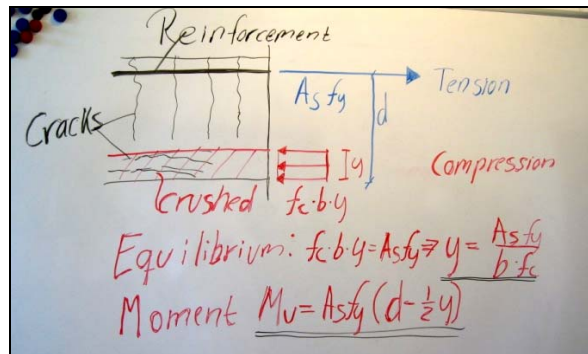 Reinforcement
As fy
Tension
d
Cracks
y
Compression
Crushed
fc·b·y
Equilibrium: fc·b·y = Asfy ⇒ y = Asfy / b·fc
Moment Mu = Asfy (d - 1/2 y)